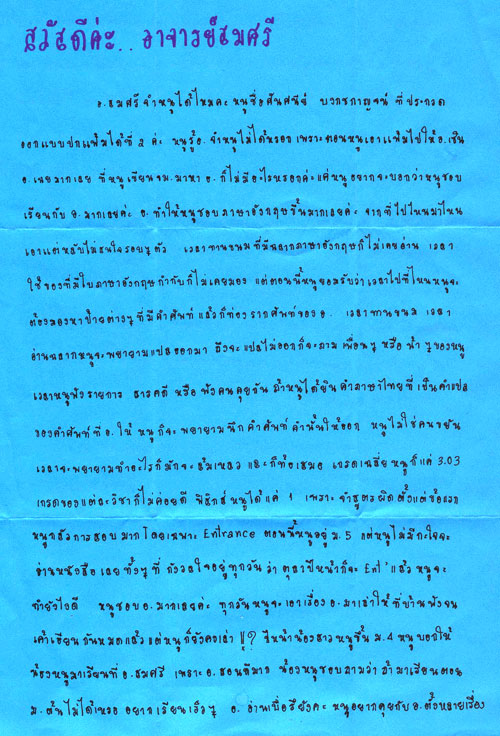 สวัสดีค่ะ.. อาจารย์สมศรี
อ.สมศรีจำหนูได้ไหมคะ หนูชื่อศันศนีย์ บวกชกาญจน์ ที่ประกวด
ออกแบบปกแฟ้มได้ที่ 2 ค่ะ หนูรู้อ. จำหนูไม่ได้หรอก เพราะตอนหนูเอาแฟ้มไปให้ อ. เซ็น
อ. เฉยมากเลย ที่หนูเขียนจม. มาหา อ. ก็ไม่มีอะไรหรอกค่ะ แค่หนูอยากจะบอกว่าหนูชอบ
เรียนกับ อ. มากเลยค่ะ อ. ทำให้หนูชอบภาษาอังกฤษขึ้นมากเลยค่ะ จากที่ไปไหนมาไหน
เอาแต่หลับไม่สนใจรอบๆ ตัว เวลาทานขนม ที่มีฉลากภาษาอังกฤษก็ไม่เคยอ่าน เวลา
ใช้ของที่มีใบภาษาอังกฤษกำกับก็ไม่เคยมอง แต่ตอนนี้หนูยอมรับว่า เวลาไปที่ไหนหนูจะ
ต้องมองหาป้ายต่างๆ ที่มีคำศัพท์ แล้วก็ท่องรากศัพท์ของ อ. เวลาทานขนม เวลา
อ่านฉลากหนูจะพยายามแปลออกมา ถึงจะแปลไม่ออกก็จะถาม เพื่อนๆ หรือ น้าๆ ของหนู
เวลาหนูฟังรายการ สารคดี หรือ ฟังคนคุยกัน ถ้าหนูได้ยิน คำภาษาไทยที่ เป็นคำแปล
ของคำศัพท์ที่ อ. ให้ หนูก็จะ พยายามนึกคำศัพท์ คำนั้นให้ออก หนูไม่ใช่คนขยัน
เวลาจะพยายามทำอะไรก็มักจะ ล้มเหลว และก็ท้อเสมอ เกรดเฉลี่ยหนูก็แค่ 3.03
เกรดของแต่ละวิชาก็ไม่ค่อยดี ฟิสิกส์หนูได้แค่ 1 เพราะ จำสูตรผิดตั้งแต่ข้อแรก
หนูกลัวการสอบมาก โดยเฉพาะ Entrance ตอนนี้หนูอยู่ ม.5 แต่หนูไม่มีกะใจจะ
อ่านหนังสือ เลย ทั้งๆ ที่ กังวลใจอยู่ทุกวัน ว่า ตุลาปีหน้าก็จะ Ent' แล้ว หนูจะ
ทำยังไงดี หนูชอบ อ. มากเลยค่ะ ทุกวันหนูจะเอาเรื่อง อ. มาเล่าให้ ที่บ้านฟังจน
เค้าเซียนกันหมดแล้ว แต่หนูก็ยังคงเล่า !! ปีหน้าน้องสาวหนูขึ้น ม.4 หนูบอกให้
น้องหนูมาเรียนที่ อ. สมศรี เพราะ อ. สอนดีมาก น้องหนูชอบถามว่า ถ้ามาเรียนตอน
ม. ต้นไม่ได้เหรอ อยากเรียนเร็วๆ อ. อ่านเบื่อรึยังคะ หนูอยากคุยกับ อ. ตั้งหลายเรื่อง